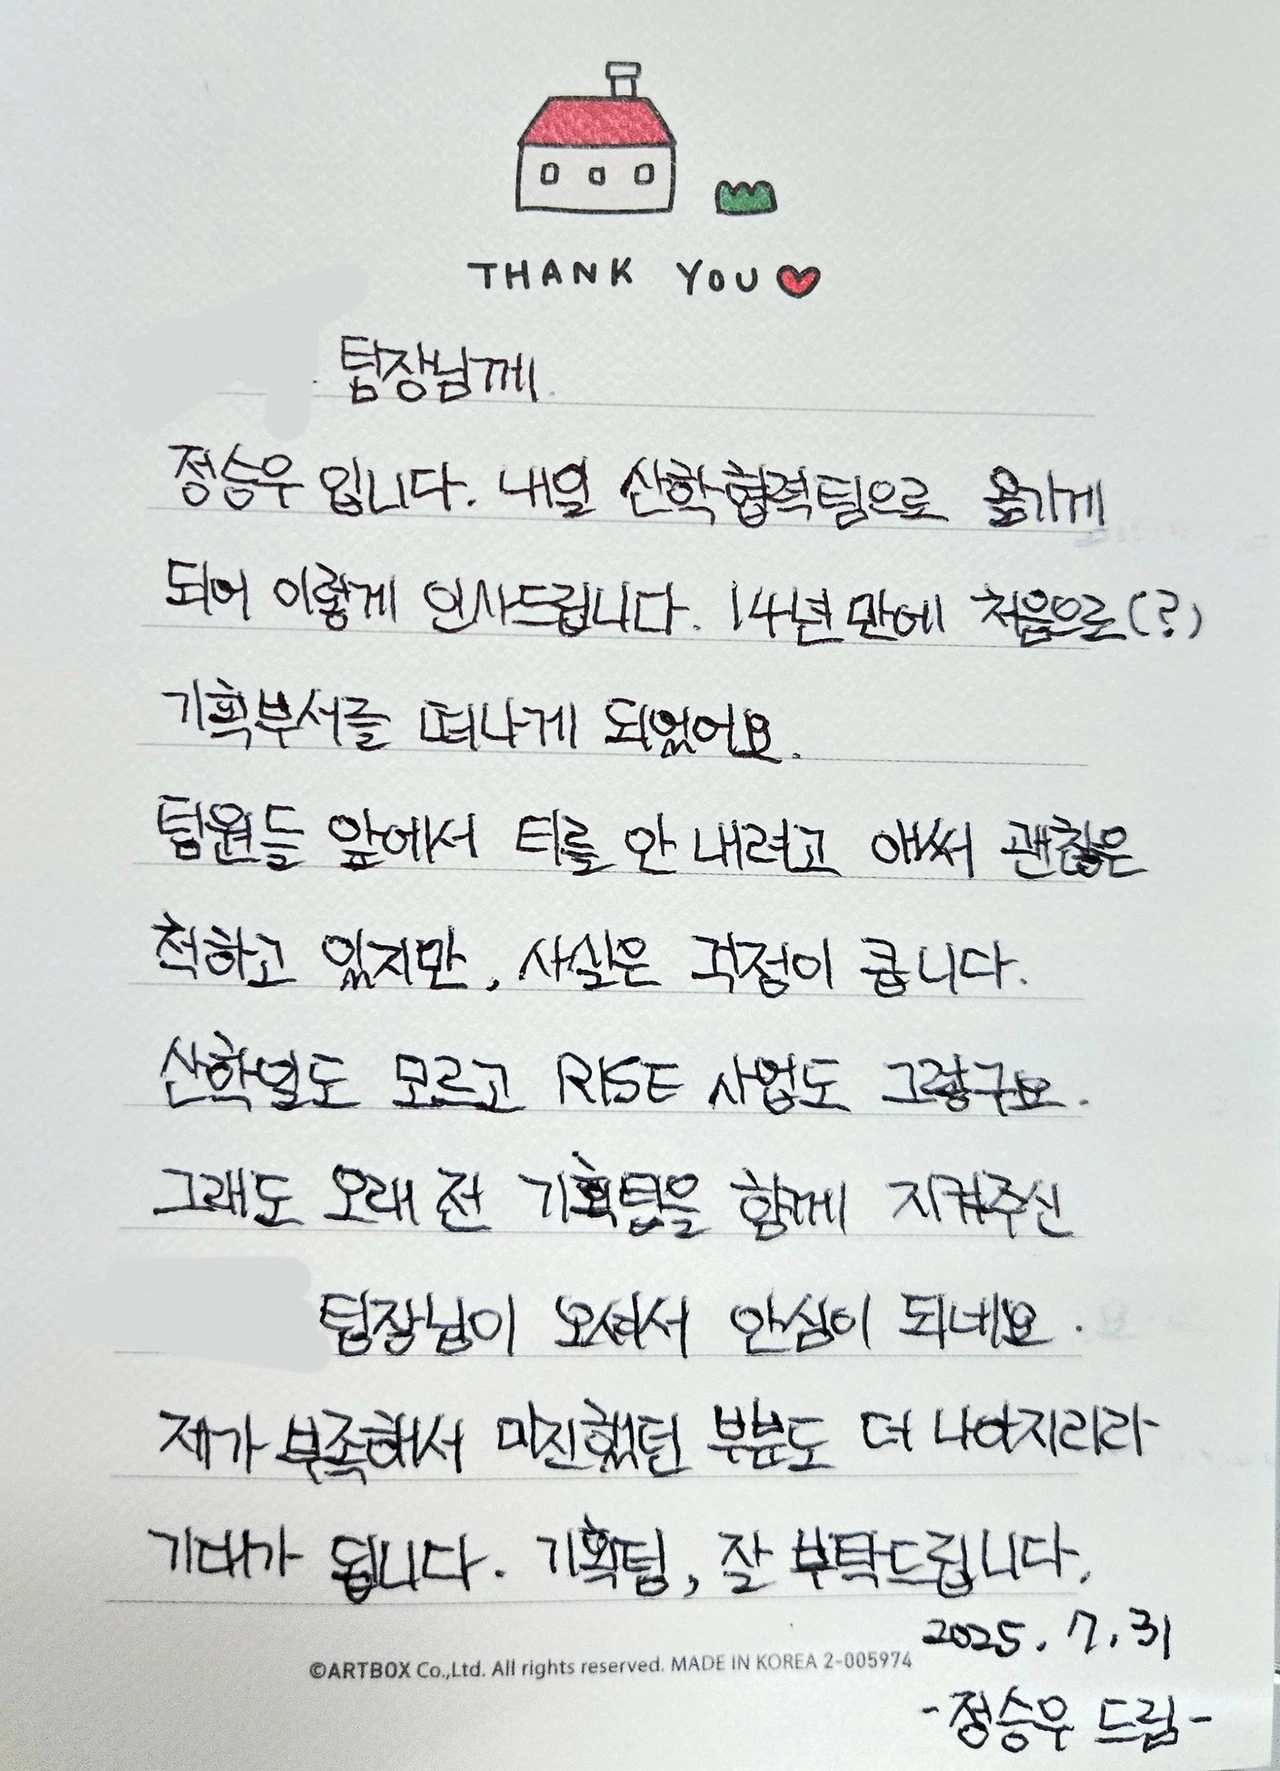 THANK YOU
팀장님께.
정승우 입니다. 내일 산학협력팀으로 옮기게
되어 이렇게 인사드립니다. 14년 만에 처음으로(?)
기획부서를 떠나게 되었어요.
팀원들 앞에서 티를 안 내려고 애써 괜찮은
척하고 있지만, 사실은 걱정이 큽니다.
산학협도 모르고 RISE 사업도 그렇구요.
그래도 오래 전 기획팀을 함께 지켜주신
팀장님이 오셔서 안심이 되네요.
제가 부족해서 미진했던 부분도 더 나아지리라
기대가 됩니다. 기획팀, 잘 부탁드립니다.
2025. 7. 31
©ARTBOX Co.,Ltd. All rights reserved. MADE IN KOREA 2-005974
-정승우 드림-